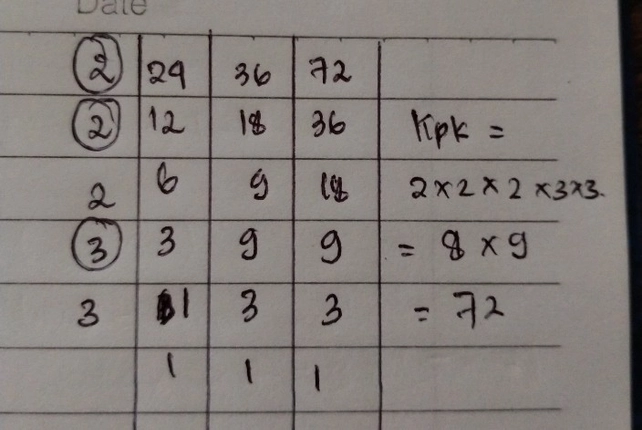 Date
2 24 36 72
2 12 18 36 Kpk =
2 6 9 18 2 x 2 x 2 x 3 x 3.
3 3 9 9 = 8 x 9
3 1 3 3 = 72
1 1 1